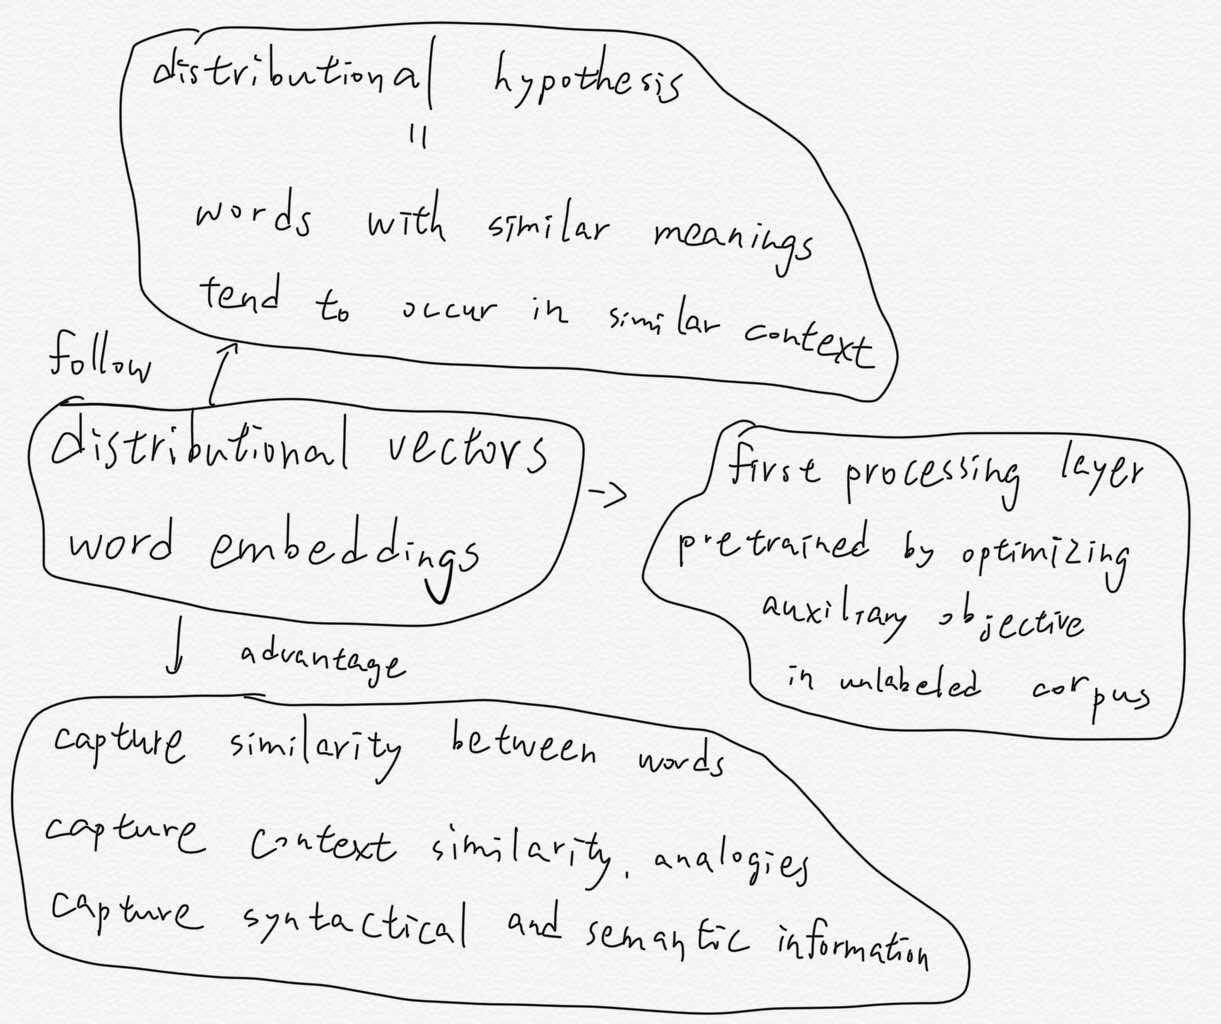 distributional hypothesis
=
words with similar meanings
tend to occur in similar context
follow
distributional vectors
word embeddings
first processing layer
pretrained by optimizing
auxiliary objective
in unlabeled corpus
advantage
capture similarity between words
capture context similarity, analogies
capture syntactical and semantic information